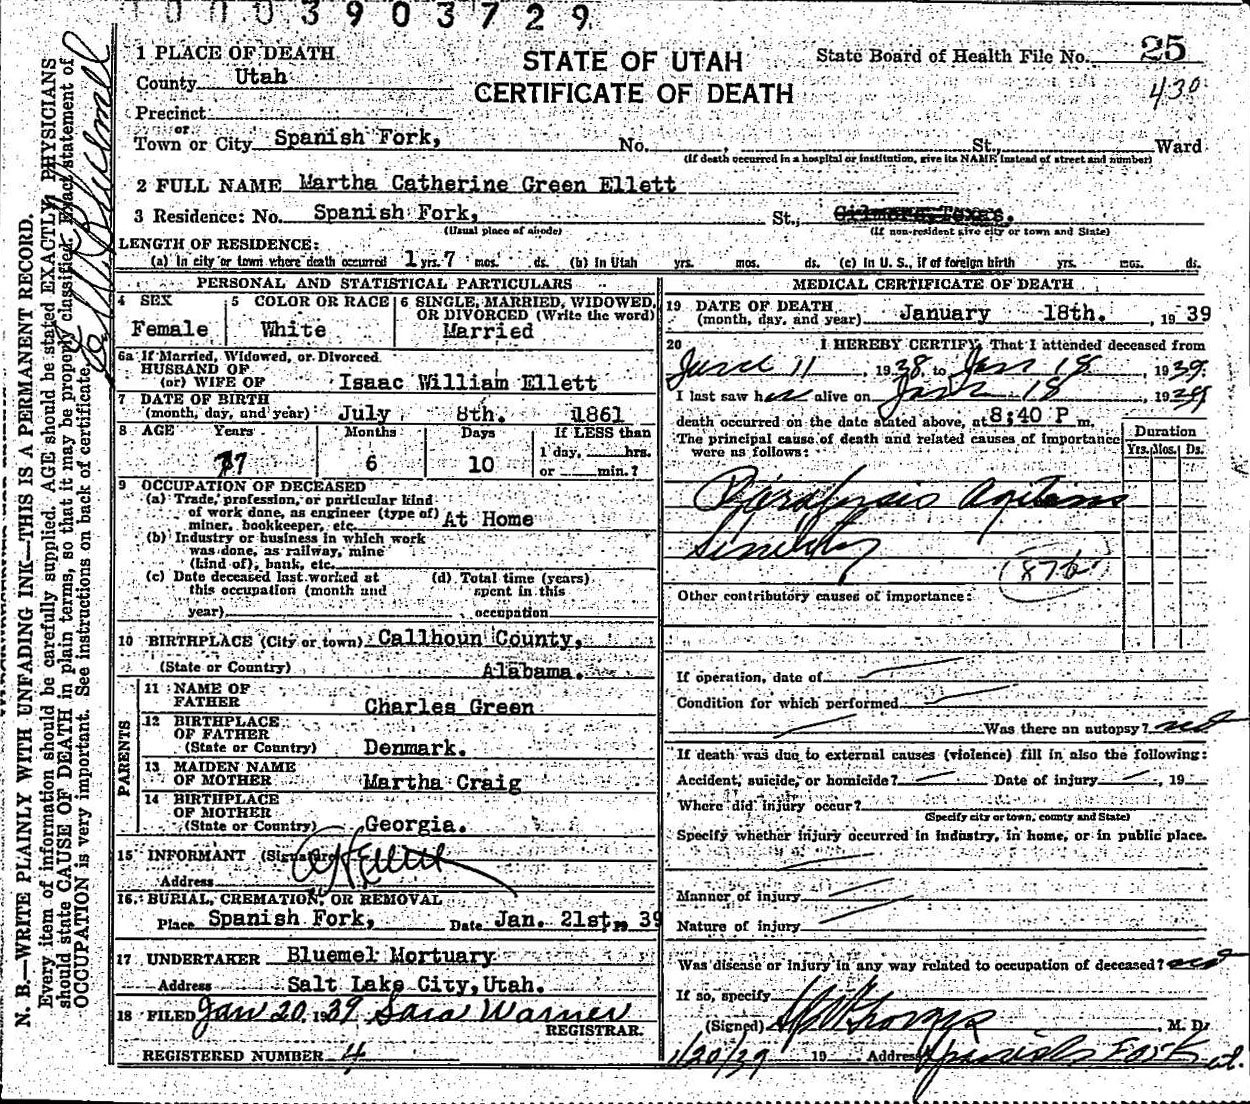 0003903729
1 PLACE OF DEATH
STATE OF UTAH
CERTIFICATE OF DEATH
State Board of Health File No. 25
430
County Utah
Precinct
or
Town or City Spanish Fork, No. St., Ward
(If death occurred in a hospital or institution, give its NAME instead of street and number)
2 FULL NAME Martha Catherine Green Ellett
3 Residence: No. Spanish Fork, St., Gilmore, Texas.
(Usual place of abode) (If non-resident give city or town and State)
LENGTH OF RESIDENCE:
(a) In city or town where death occurred 1 yrs. 7 mos. ds. (b) In Utah yrs. mos. ds. (c) In U. S., if of foreign birth yrs. mos. ds.
PERSONAL AND STATISTICAL PARTICULARS
4 SEX
Female
5 COLOR OR RACE
White
6 SINGLE, MARRIED, WIDOWED,
OR DIVORCED (Write the word)
Married
6a If Married, Widowed, or Divorced
HUSBAND OF
(or) WIFE OF Isaac William Ellett
7 DATE OF BIRTH
(month, day, and year) July 8th. 1861
8 AGE Years Months Days If LESS than
1 day, hrs.
77 6 10 or min.?
9 OCCUPATION OF DECEASED
(a) Trade, profession, or particular kind
of work done, as engineer (type of)
miner, bookkeeper, etc. At Home
(b) Industry or business in which work
was done, as railway, mine
(kind of), bank, etc.
(c) Date deceased last worked at
this occupation (month and
year)
(d) Total time (years)
spent in this
occupation
10 BIRTHPLACE (City or town) Callhoun County,
(State or Country) Alabama.
PARENTS
11 NAME OF
FATHER Charles Green
12 BIRTHPLACE
OF FATHER
(State or Country) Denmark.
13 MAIDEN NAME
OF MOTHER Martha Craig
14 BIRTHPLACE
OF MOTHER
(State or Country) Georgia.
15 INFORMANT (Signature)
Address
16. BURIAL, CREMATION, OR REMOVAL
Place Spanish Fork, Date Jan. 21st, 39
17 UNDERTAKER Bluemel Mortuary
Address Salt Lake City, Utah.
18 FILED Jan 20, 1939 Sara Warner
REGISTRAR.
REGISTERED NUMBER 4
MEDICAL CERTIFICATE OF DEATH
19 DATE OF DEATH
(month, day, and year) January 18th. , 19 39
20 I HEREBY CERTIFY, That I attended deceased from
June 11, 1938 to Jan 18, 1939.
I last saw her alive on Jan 18, 1939
death occurred on the date stated above, at 8;40 P m.
The principal cause of death and related causes of importance
were as follows:
Duration
Yrs. Mos. Ds.
Paralysis Agitans
Senility
Other contributory causes of importance:
If operation, date of
Condition for which performed
Was there an autopsy? no
If death was due to external causes (violence) fill in also the following:
Accident, suicide, or homicide? Date of injury , 19
Where did injury occur?
(Specify city or town, county and State)
Specify whether injury occurred in industry, in home, or in public place.
Manner of injury
Nature of injury
Was disease or injury in any way related to occupation of deceased? no
If so, specify
(Signed) , M. D.
1/20/39 19 Address Spanish Fork ut.
N. B.—WRITE PLAINLY WITH UNFADING INK—THIS IS A PERMANENT RECORD.
Every item of information should be carefully supplied. AGE should be stated EXACTLY. PHYSICIANS
should state CAUSE OF DEATH in plain terms, so that it may be properly classified. Exact statement of
OCCUPATION is very important. See instructions on back of certificate.